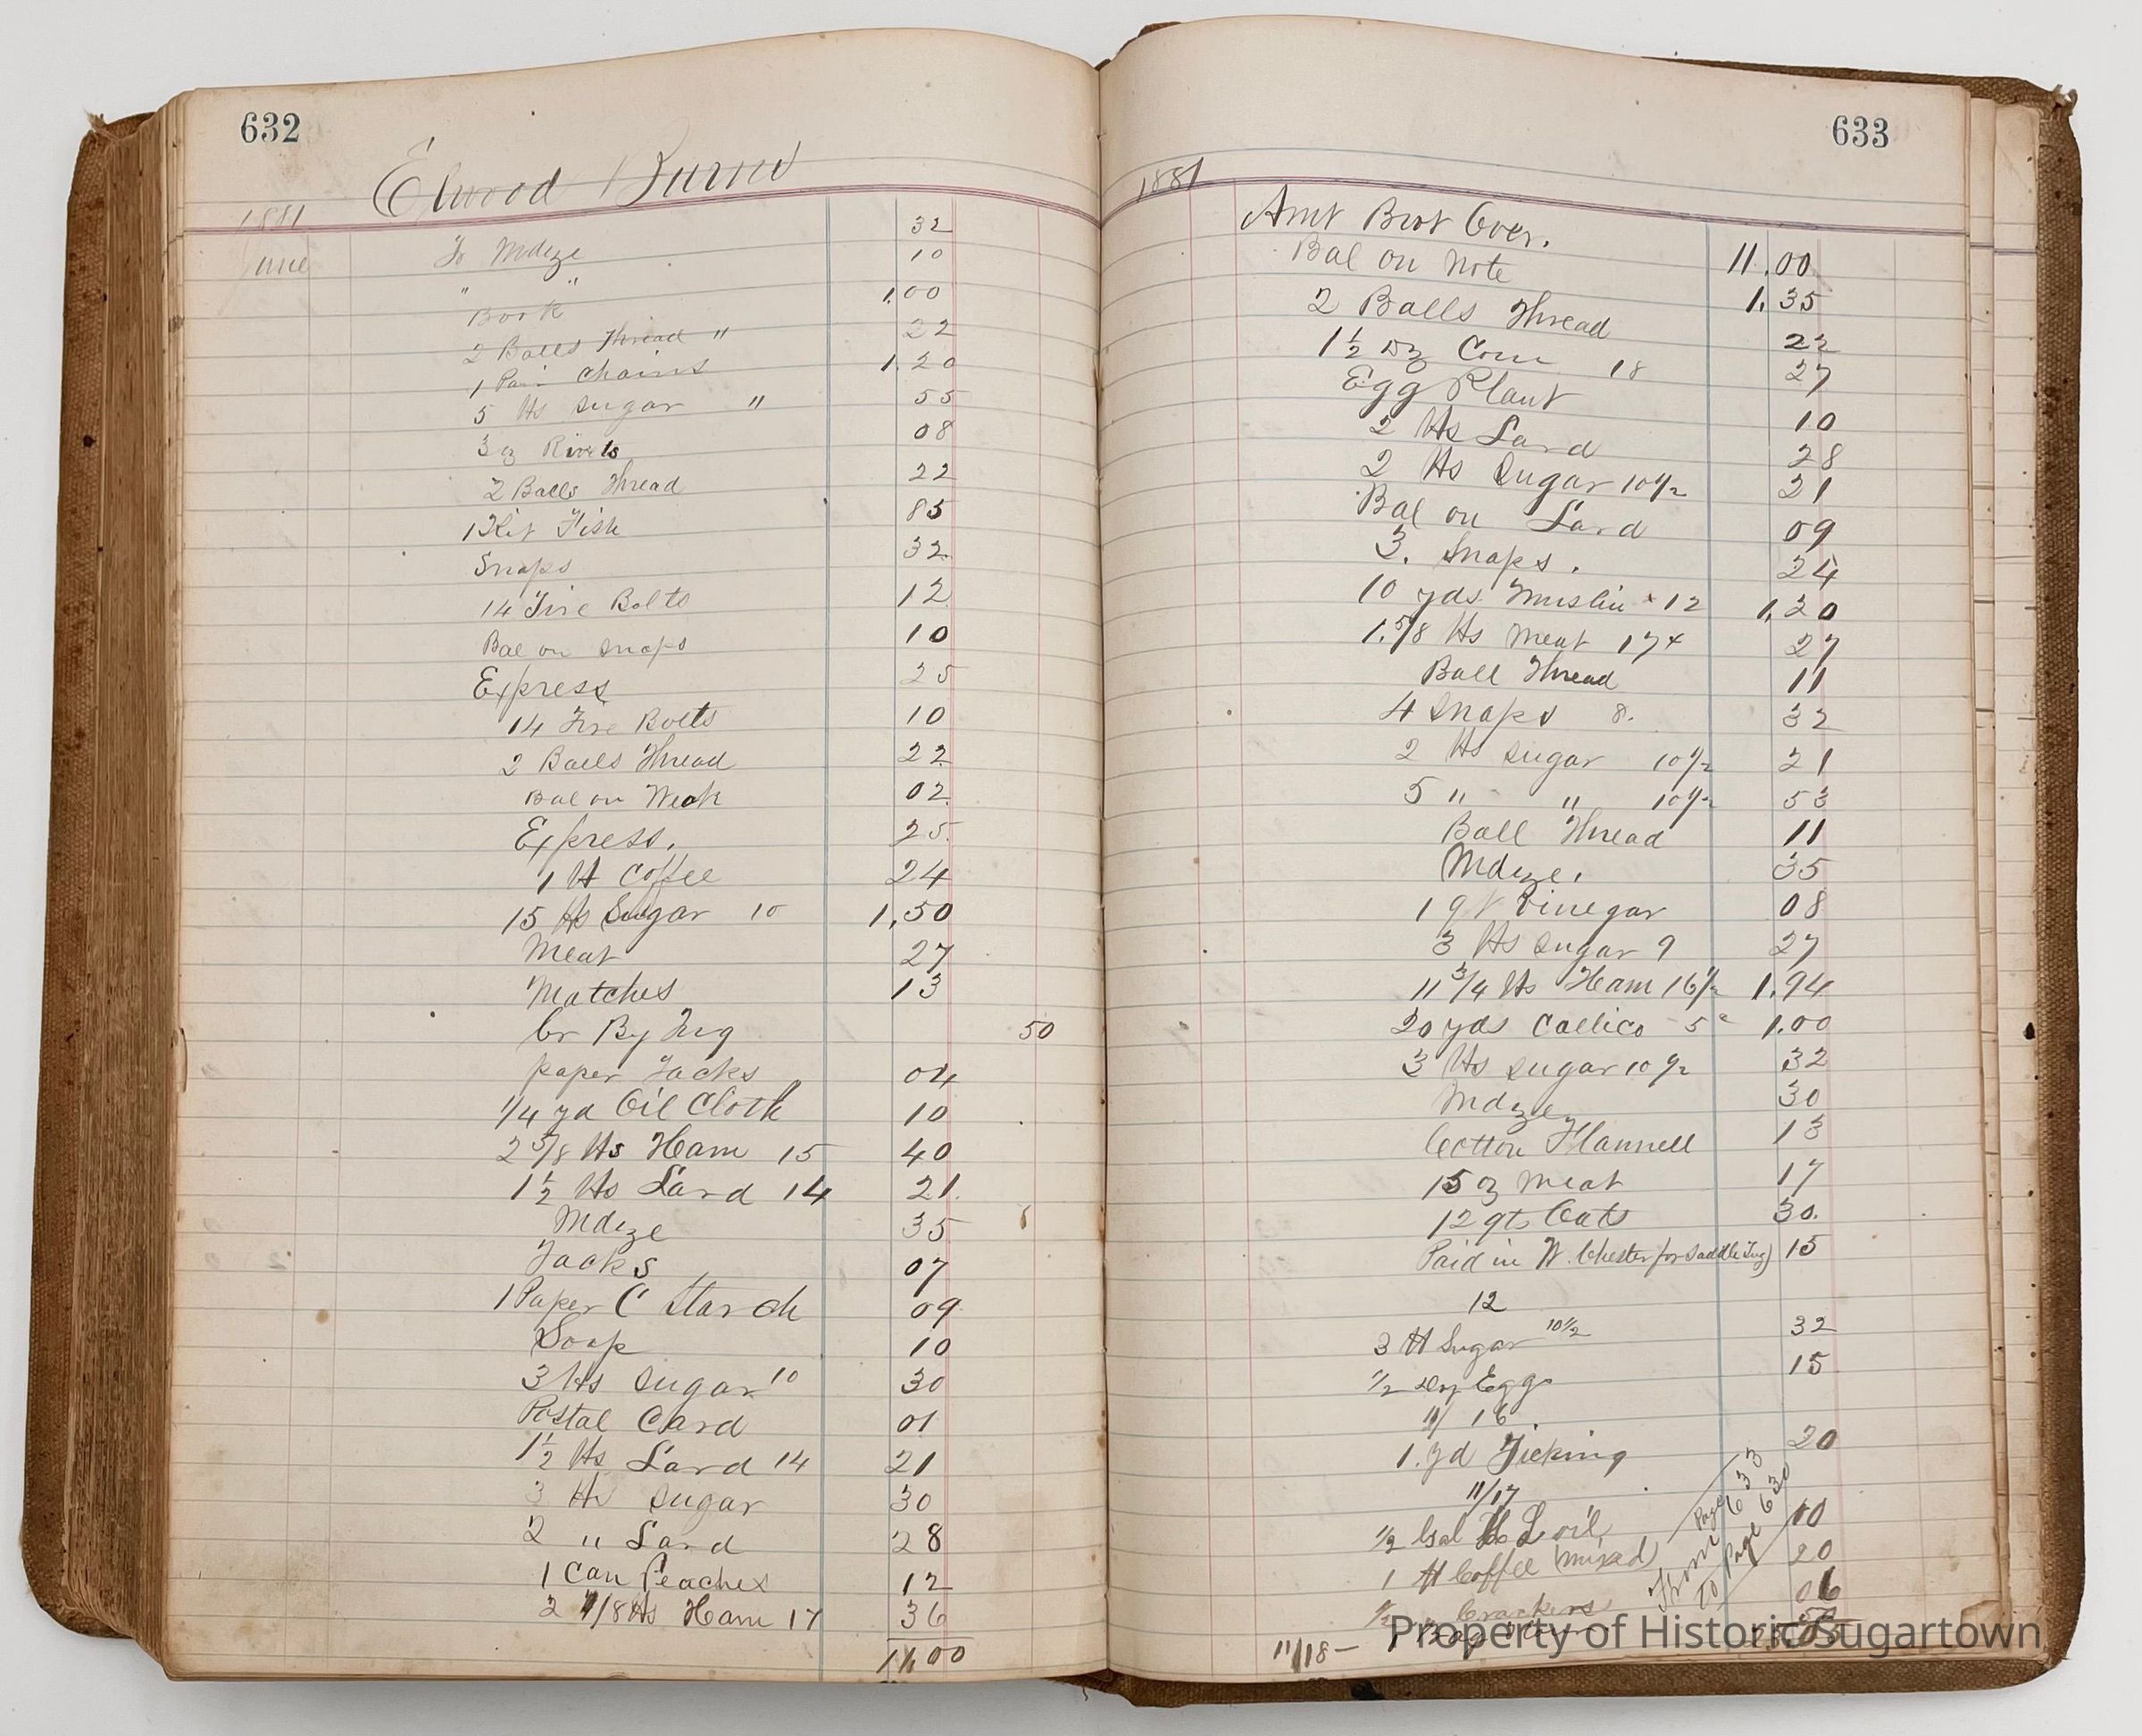 632
Elwood
1881
June To Mdze 32
" " 10
Book 1.00
2 Balls Thread " 22
1 Pair Chains 1.20
5 lbs Sugar " 55
3 oz Rivets 08
2 Balls Thread 22
1 Kit Fish 85
Snaps 32
14 Tire Bolts 12
Bal on Snaps 10
Express 25
14 Tire Bolts 10
2 Balls Thread 22
Bal on 02
Express. 25
1 lb Coffee 24
15 lbs Sugar 10 1.50
Meat 27
Matches 13
Cr By Tug 50
paper Tacks 04
1/4 yd Oil Cloth 10
2 5/8 lbs Ham 15 40
1 1/2 lbs Lard 14 21
Mdze 35
Tacks 07
1 Paper C Starch 09
Soap 10
3 lbs Sugar 10 30
Postal Card 01
1 1/2 lbs Lard 14 21
3 lbs Sugar 30
2 " Lard 28
1 Can Peaches 12
2 1/8 lbs Ham 17 36
11.00
633
1881
Amt Brot Over. 11.00
Bal on Note 1.35
2 Balls Thread 22
1 1/2 Dz Corn 18 27
Egg Plant 10
2 lbs Lard 28
2 lbs Sugar 10 1/2 21
Bal on Lard 09
3. Snaps. 24
10 yds Muslin 12 1.20
1.5/8 lbs Meat 17 27
Ball Thread 11
4 Snaps 8. 32
2 lbs Sugar 10 1/2 21
5 " " 10 1/2 53
Ball Thread 11
Mdze. 35
1 qt Vinegar 08
3 lbs Sugar 9 27
11 3/4 lbs Ham 16 1/2 1.94
20 yds Callico 5c 1.00
3 lbs Sugar 10 1/2 32
Mdze 30
Cotton Flannell 13
15 oz Meat 17
12 qts Oats 30.
Paid in W. Chester (for Saddle Tug) 15
12
3 lb Sugar 10 1/2 32
1/2 Dz Eggs 15
11/16
1. yd Ticking 20
11/17
1/2 Gal oil 10
1 lb Coffee (mixed) 20
1/2 " Crackers 06
11/18 -
From Page 633
To Page 630
Property of Historic Sugartown